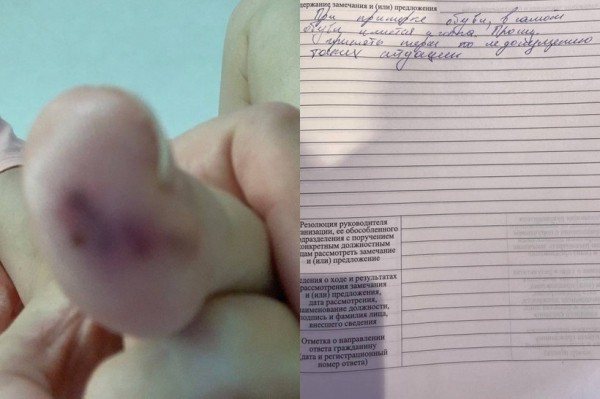 держание замечания и (или) предложения
При примерке обуви, в самой
обуви имеется игла. Прошу
принять меры по недопущению
таких ситуаций
Резолюция руководителя
ганизации, ее обособленного
одразделения с поручением
конкретным должностным
цам рассмотреть замечание
и (или) предложение
едения о ходе и результатах
рассмотрения замечания
и (или) предложения,
дата рассмотрения,
наименование должности,
подпись и фамилия лица,
внесшего сведения
Отметка о направлении
ответа гражданину
(дата и регистрационный
номер ответа)